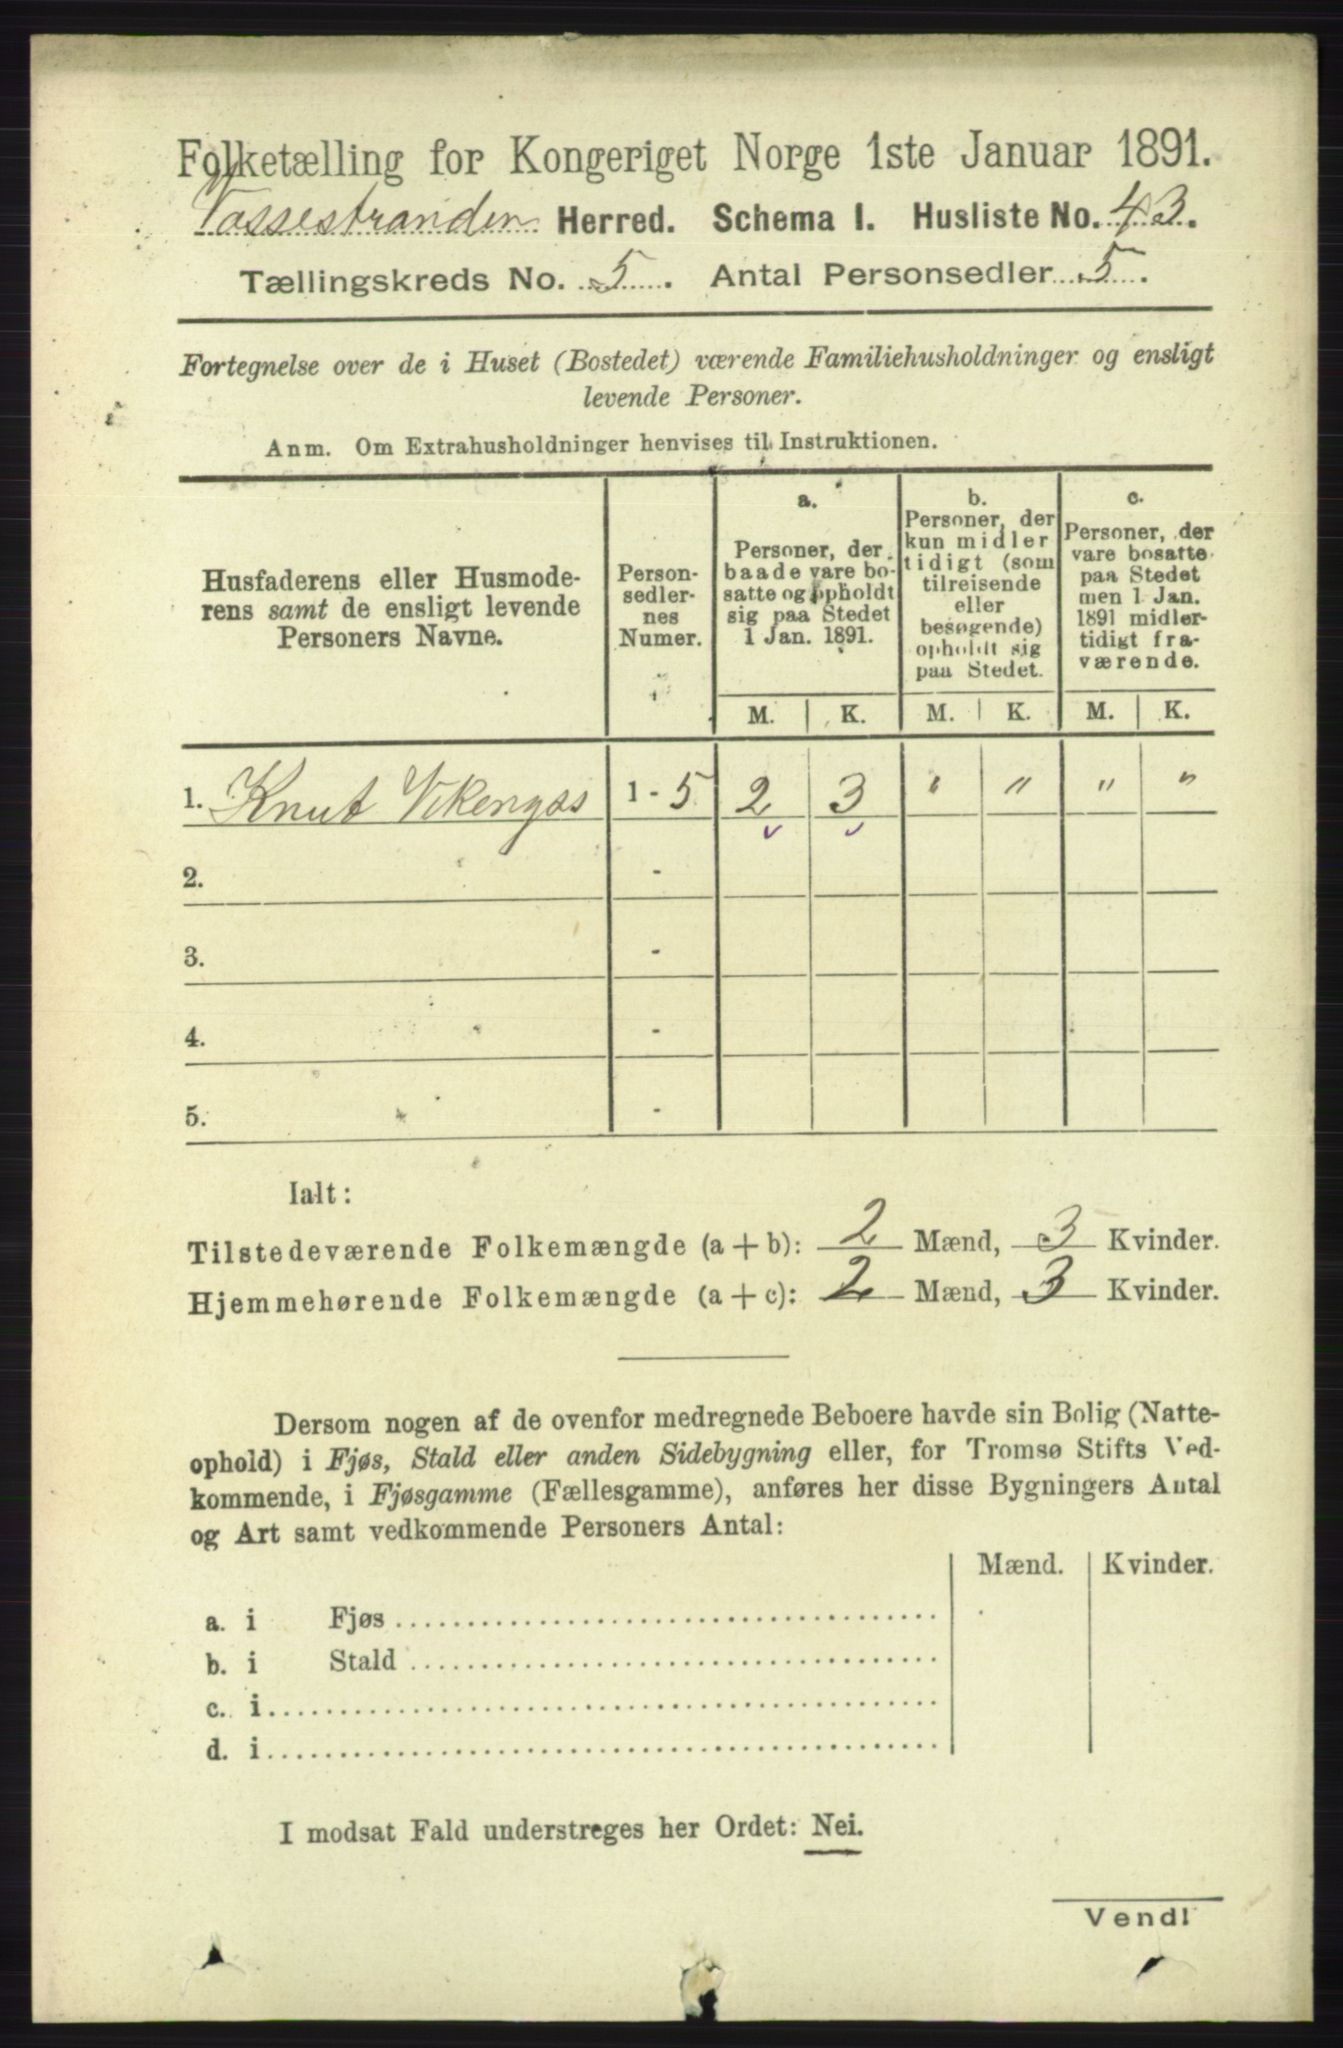 Folketælling for Kongeriget Norge 1ste Januar 1891.
Vossestranden Herred. Schema I. Husliste No. 43.
Tællingskreds No. 5. Antal Personsedler 5.
Fortegnelse over de i Huset (Bostedet) værende Familiehusholdninger og ensligt
levende Personer.
Anm. Om Extrahusholdninger henvises til Instruktionen.
Husfaderens eller Husmode-
rens samt de ensligt levende
Personers Navne.
Person-
sedler-
nes
Numer.
a.
Personer, der
baade vare bo-
satte og opholdt
sig paa Stedet
1 Jan. 1891.
b.
Personer, der
kun midler
tidigt (som
tilreisende
eller
besøgende)
opholdt sig
paa Stedet.
c.
Personer, der
vare bosatte
paa Stedet
men 1 Jan.
1891 midler-
tidigt fra-
værende.
M. K. M. K. M. K.
1. Knut Vikengas 1 - 5 2 3 " " " "
2. -
3. -
4. -
5. -
Ialt:
Tilstedeværende Folkemængde (a + b): 2 Mænd, 3 Kvinder.
Hjemmehørende Folkemængde (a + c): 2 Mænd, 3 Kvinder.
Dersom nogen af de ovenfor medregnede Beboere havde sin Bolig (Natte-
ophold) i Fjøs, Stald eller anden Sidebygning eller, for Tromsø Stifts Ved-
kommende, i Fjøsgamme (Fællesgamme), anføres her disse Bygningers Antal
og Art samt vedkommende Personers Antal:
Mænd. Kvinder.
a. i Fjøs
b. i Stald
c. i
d. i
I modsat Fald understreges her Ordet: Nei.
Vend!